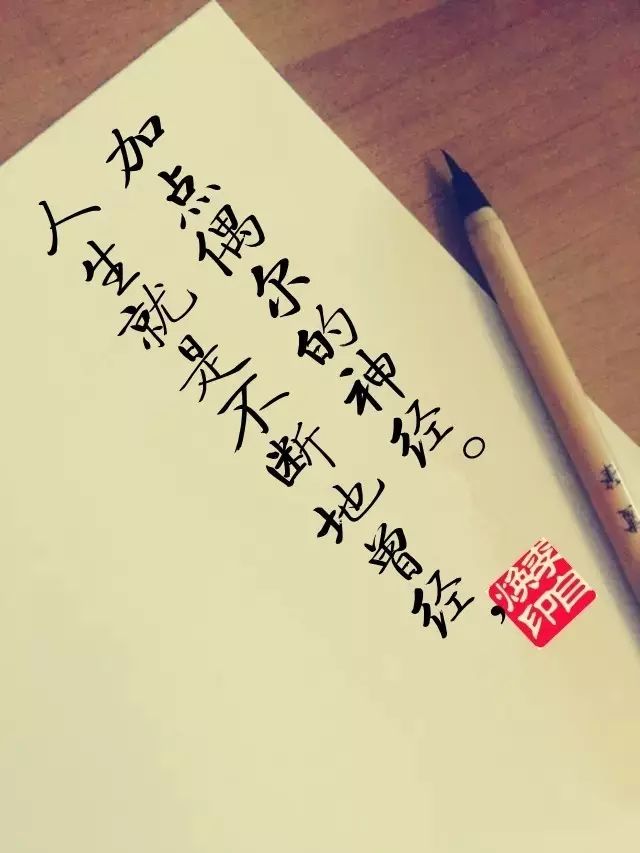 人生就是不断地曾经，
加点偶尔的神经。
李自
焕印